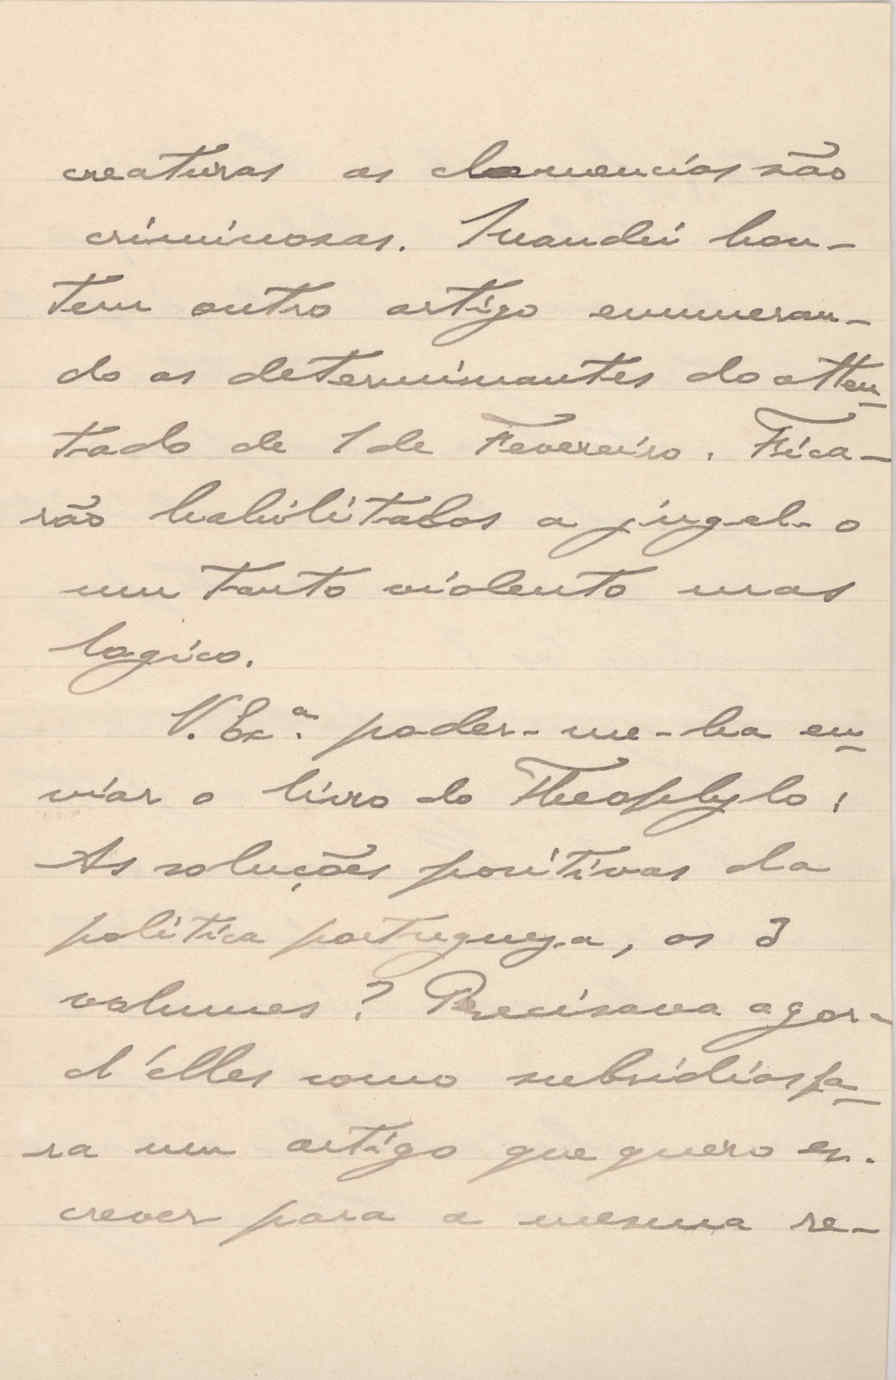 creaturas as clemencias são
criminosas. Mandei hon-
tem outro artigo enumeran-
do as determinantes do atten-
tado de 1 de Fevereiro. Fica-
rão habilitados a julgal-o
um tanto violento mas
logico.
V. Ex.ª poder-me-ha en-
viar o livro do Theophylo:
As soluções positivas da
politica portugueza, os 3
volumes? Precisava agora
d'elles como subsidios pa-
ra um artigo que quero es-
crever para a mesma re-